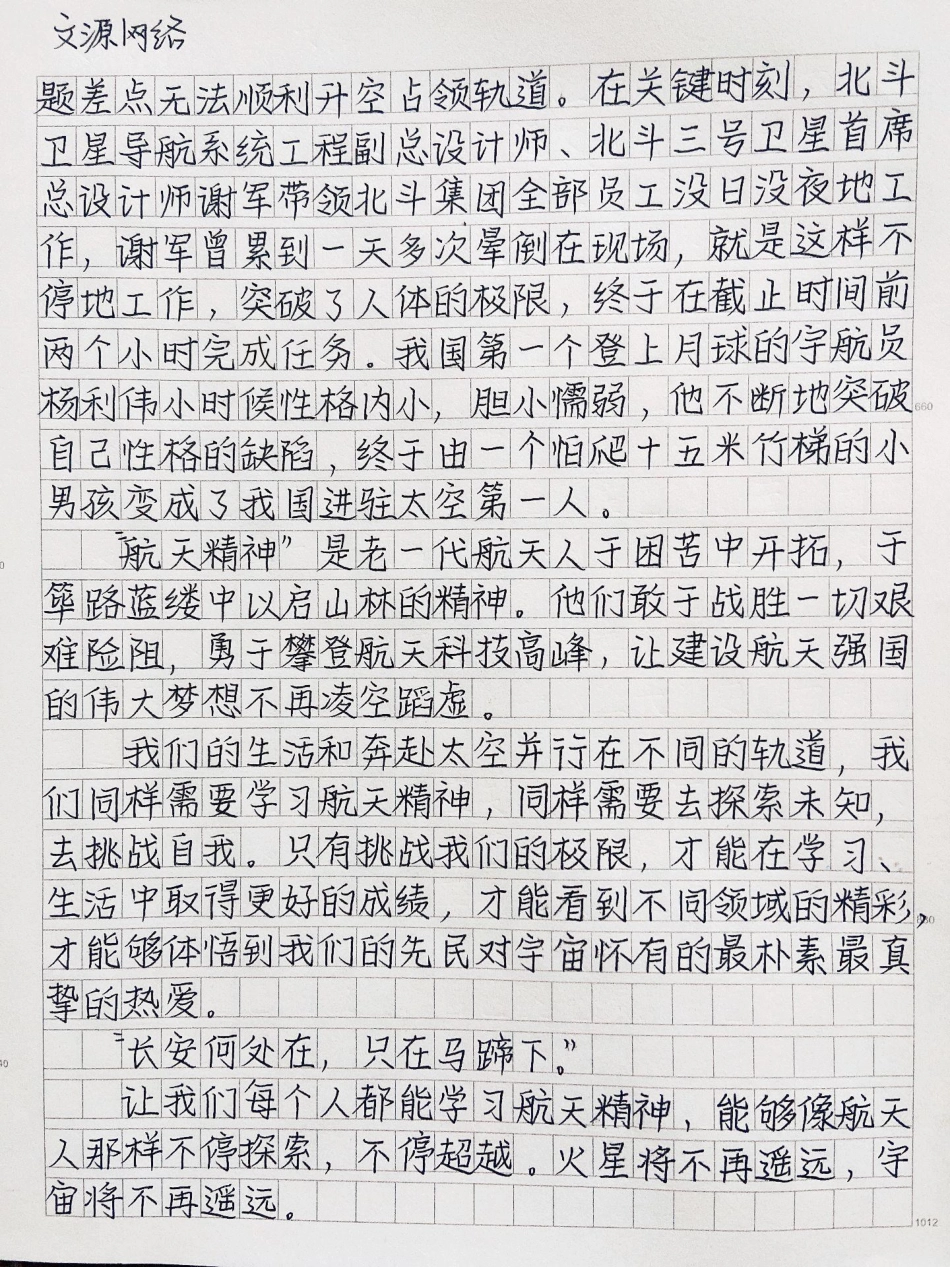 文源网络
题差点无法顺利升空占领轨道。在关键时刻，北斗
卫星导航系统工程副总设计师、北斗三号卫星首席
总设计师谢军带领北斗集团全部员工没日没夜地工
作，谢军曾累到一天多次晕倒在现场，就是这样不
停地工作，突破了人体的极限，终于在截止时间前
两个小时完成任务。我国第一个登上月球的宇航员
杨利伟小时候性格内小，胆小懦弱，他不断地突破
660
自己性格的缺陷，终于由一个怕爬十五米竹梯的小
男孩变成了我国进驻太空第一人。
“航天精神”是老一代航天人于困苦中开拓，于
筚路蓝缕中以启山林的精神。他们敢于战胜一切艰
难险阻，勇于攀登航天科技高峰，让建设航天强国
的伟大梦想不再凌空蹈虚。
我们的生活和奔赴太空并行在不同的轨道，我
们同样需要学习航天精神，同样需要去探索未知，
去挑战自我。只有挑战我们的极限，才能在学习、
生活中取得更好的成绩，才能看到不同领域的精彩，
才能够体悟到我们的先民对宇宙怀有的最朴素最真
挚的热爱。
“长安何处在，只在马蹄下。”
让我们每个人都能学习航天精神，能够像航天
人那样不停探索，不停超越。火星将不再遥远，宇
宙将不再遥远。
1012